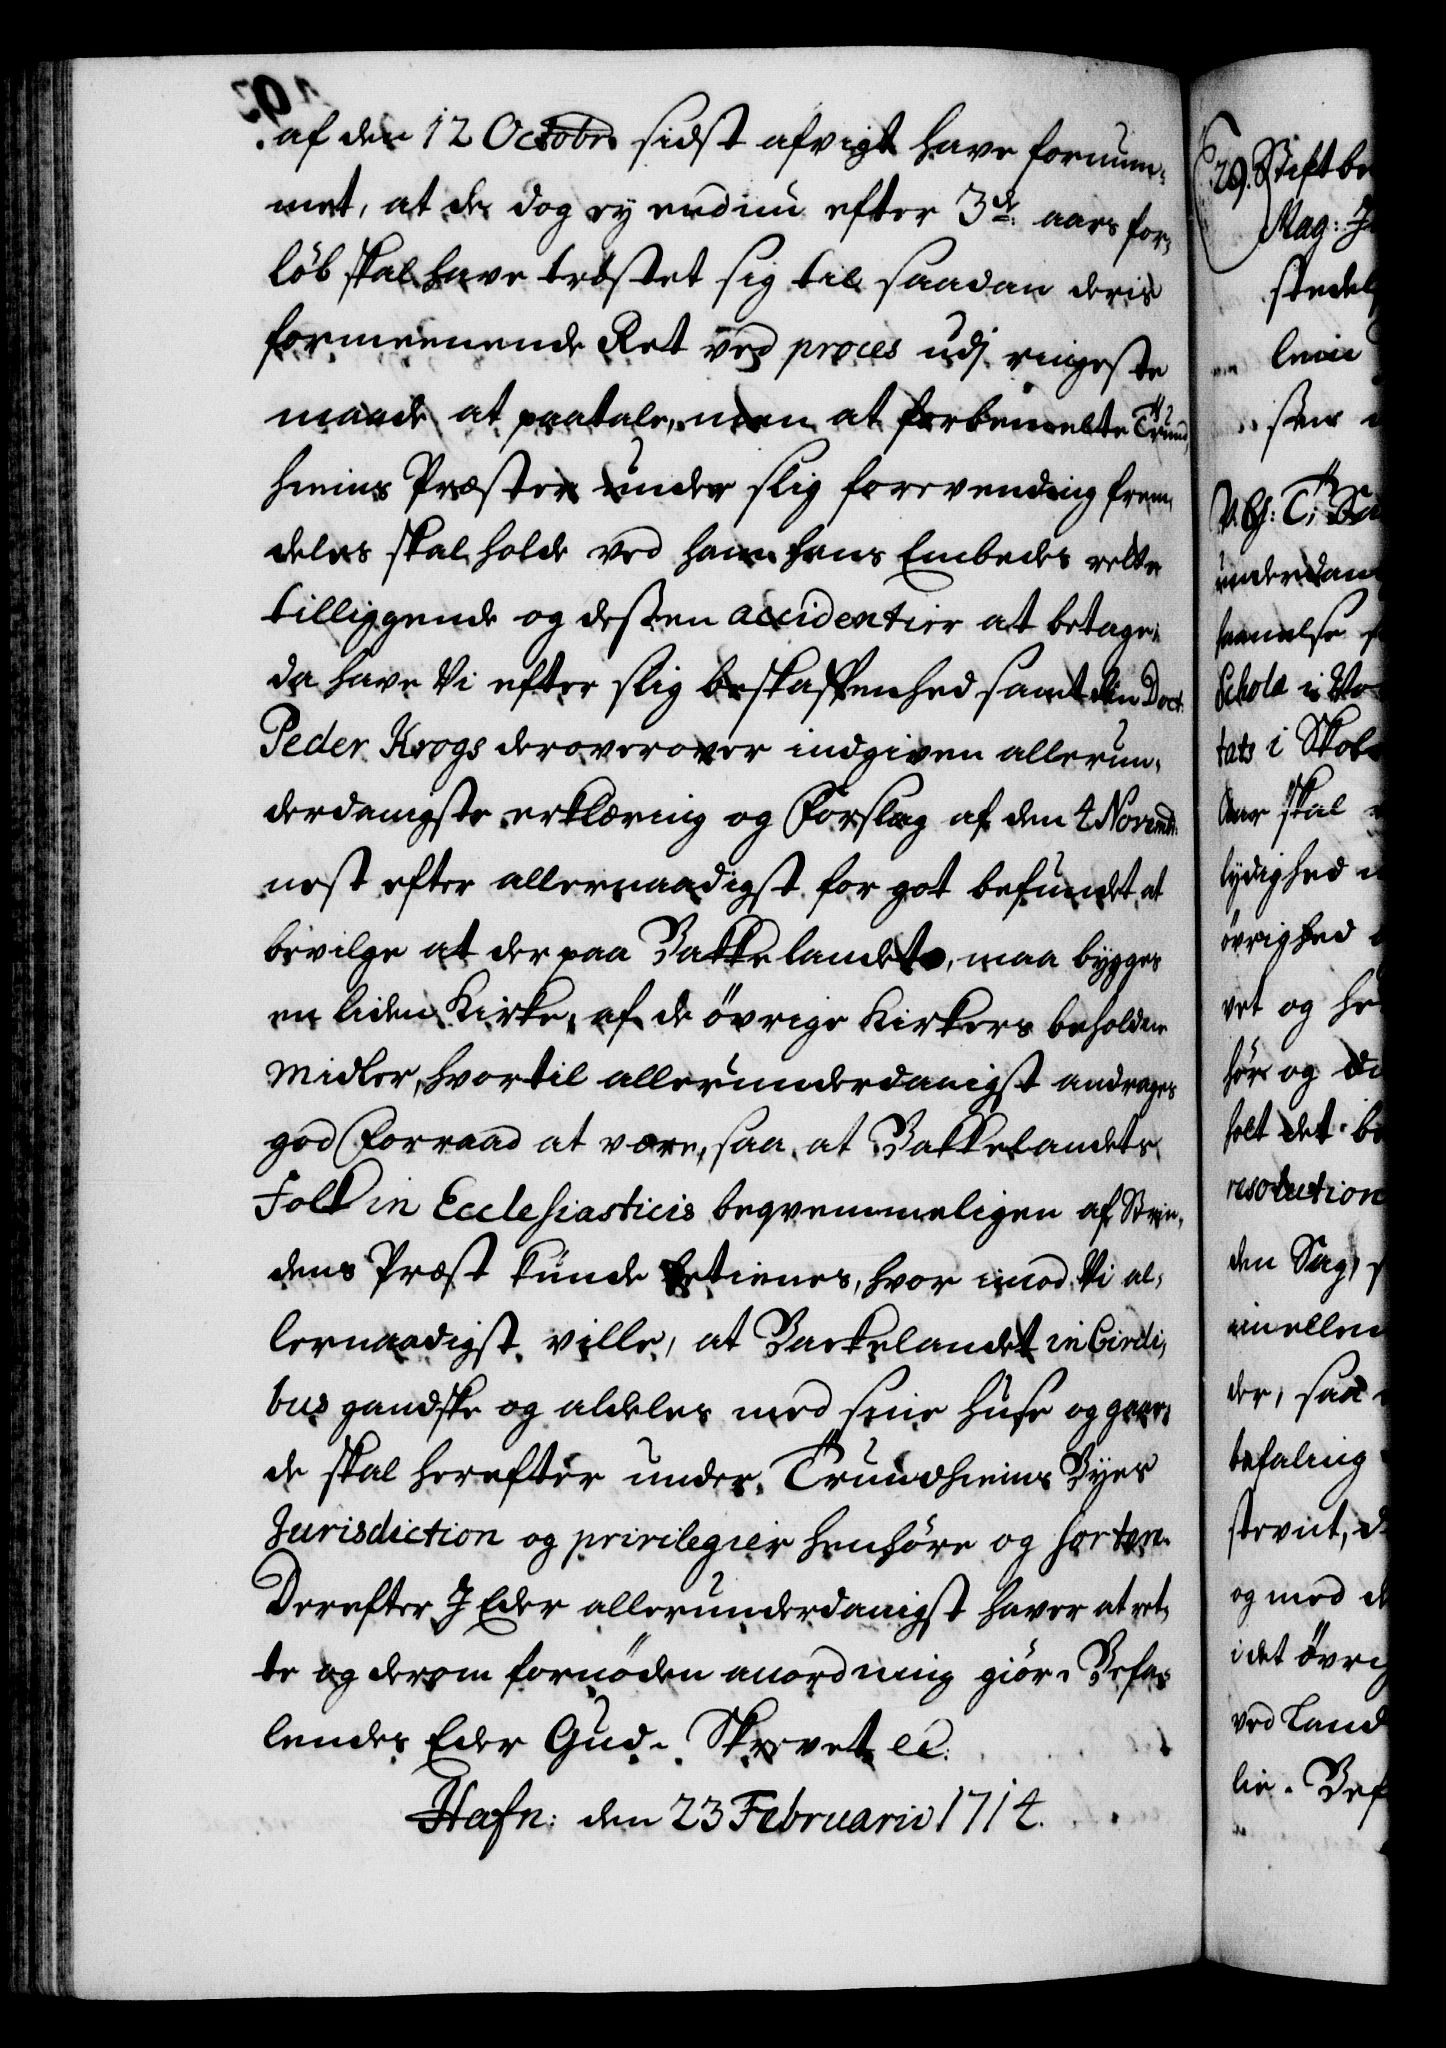 af den 12 Octobr. sidst afvigt have fornum-
met, at de dog ey endnu efter 3de. aars for-
løb skal have trøstet sig til saadan deris
formeenende Ret ved proces udj ringeste
maade at paatale, men at forbemelte Trund-
hiems Præster under slig forevending frem-
deles skal holde ved ham hans Embedes rette
tilliggende og dessen accidentier at betage;
da have Vi efter slig beskaffenhed samt din Doct.
Peder Krogs deroverover indgiven allerun-
derdanigste erklæring og Forslag af den 4 Novemb:
nest efter allernaadigst for got befundet at
bevilge at der paa Bakkelandet, maa bygges
en liden Kirke, af de øvrige Kirkers beholdne
Midler, hvortil allerunderdanigst andrages
god Forraad at være, saa at Bakkelandets
Folk in Ecclesiasticis beqvemmeligen af Strin-
dens Præst kunde betienes, hvor imod Vi al-
lernaadigst ville, at Backelandet in Civili-
bus gandske og aldeles med sine Huse og gaar-
de skal herefter under Trundhiems Byes
Jurisdiction og privilegier henhøre og sortere.
Derefter I Eder allerunderdanigst haver at ret-
te og derom fornøden anordning giøre. Befa-
lendes Eder Gud. Skrevet etc:
Hafn: den 23 Februarii 1714.
29. Stiftbe
Mag: J
stedel
lene
sen
V. G: T: Sa
underdan
Schola i
tats i Skol
Aar skal
lydighed
øvrighed
vet og he
før og
holt det be
resolution
den Sag,
imellem
der, saa
befaling
stevnt, d
og med d
i det øvrig
ved Land
lie. Bef